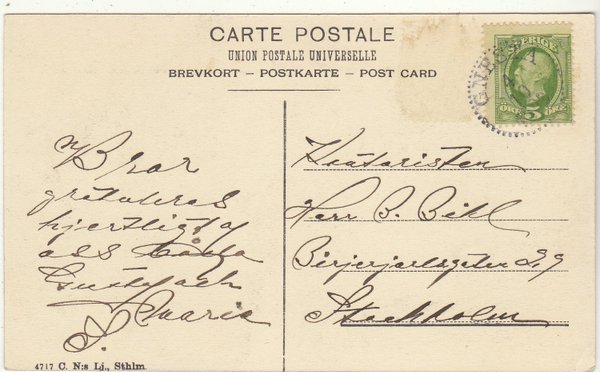 CARTE POSTALE
UNION POSTALE UNIVERSELLE
BREVKORT – POSTKARTE – POST CARD
SVERIGE
5
ÖRE ÖRE
GNESTA
Bror
gratuleras
hjertligt af
oss båda
Gustaf och
Maria
Notaristen
Herr B. Bihl
Birjerjarlsgatan 29
Stockholm
4717 C. N:s Lj., Sthlm.